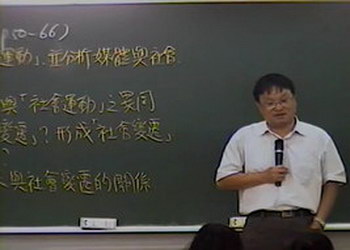 50-66)
運動」．並分析媒體與社會
與「社會運動」之異同
變遷」？形成「社會變遷」
？
與社會變遷的關係